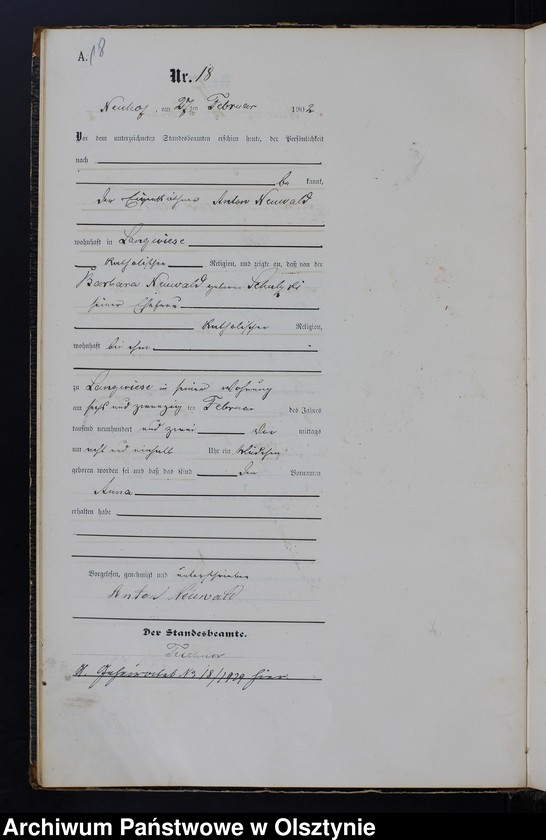 A. 18
Nr. 18
Neuhof, am 27ten Februar 1902
Vor dem unterzeichneten Standesbeamten erschien heute, der Persönlichkeit
nach
be kannt,
der Eigenkäthner Anton Neuwald
wohnhaft in Langwiese
katholischer Religion, und zeigte an, daß von der
Barbara Neuwald geborene
seiner Ehefrau
katholischer Religion,
wohnhaft bei ihm
zu Langwiese in seiner Wohnung
am sechs und zwanzig ten Februar des Jahres
tausend neunhundert und zwei Vor mittags
um acht und einhalb Uhr ein Mädchen
geboren worden sei und daß das Kind den Vornamen
Anna
erhalten habe
Vorgelesen, genehmigt und unterschrieben
Anton Neuwald
Der Standesbeamte.
Geheiratet N 18/1929 hier.
Archiwum Państwowe w Olsztynie